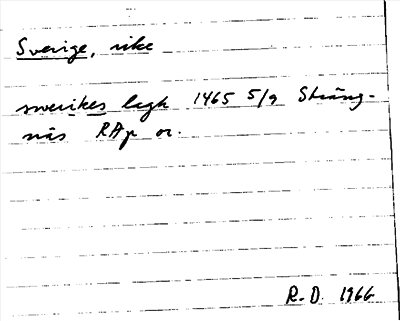 Sverige, rike
swerikes lagh 1465 5/9 Sträng-
näs RAp or.
R.D. 1966